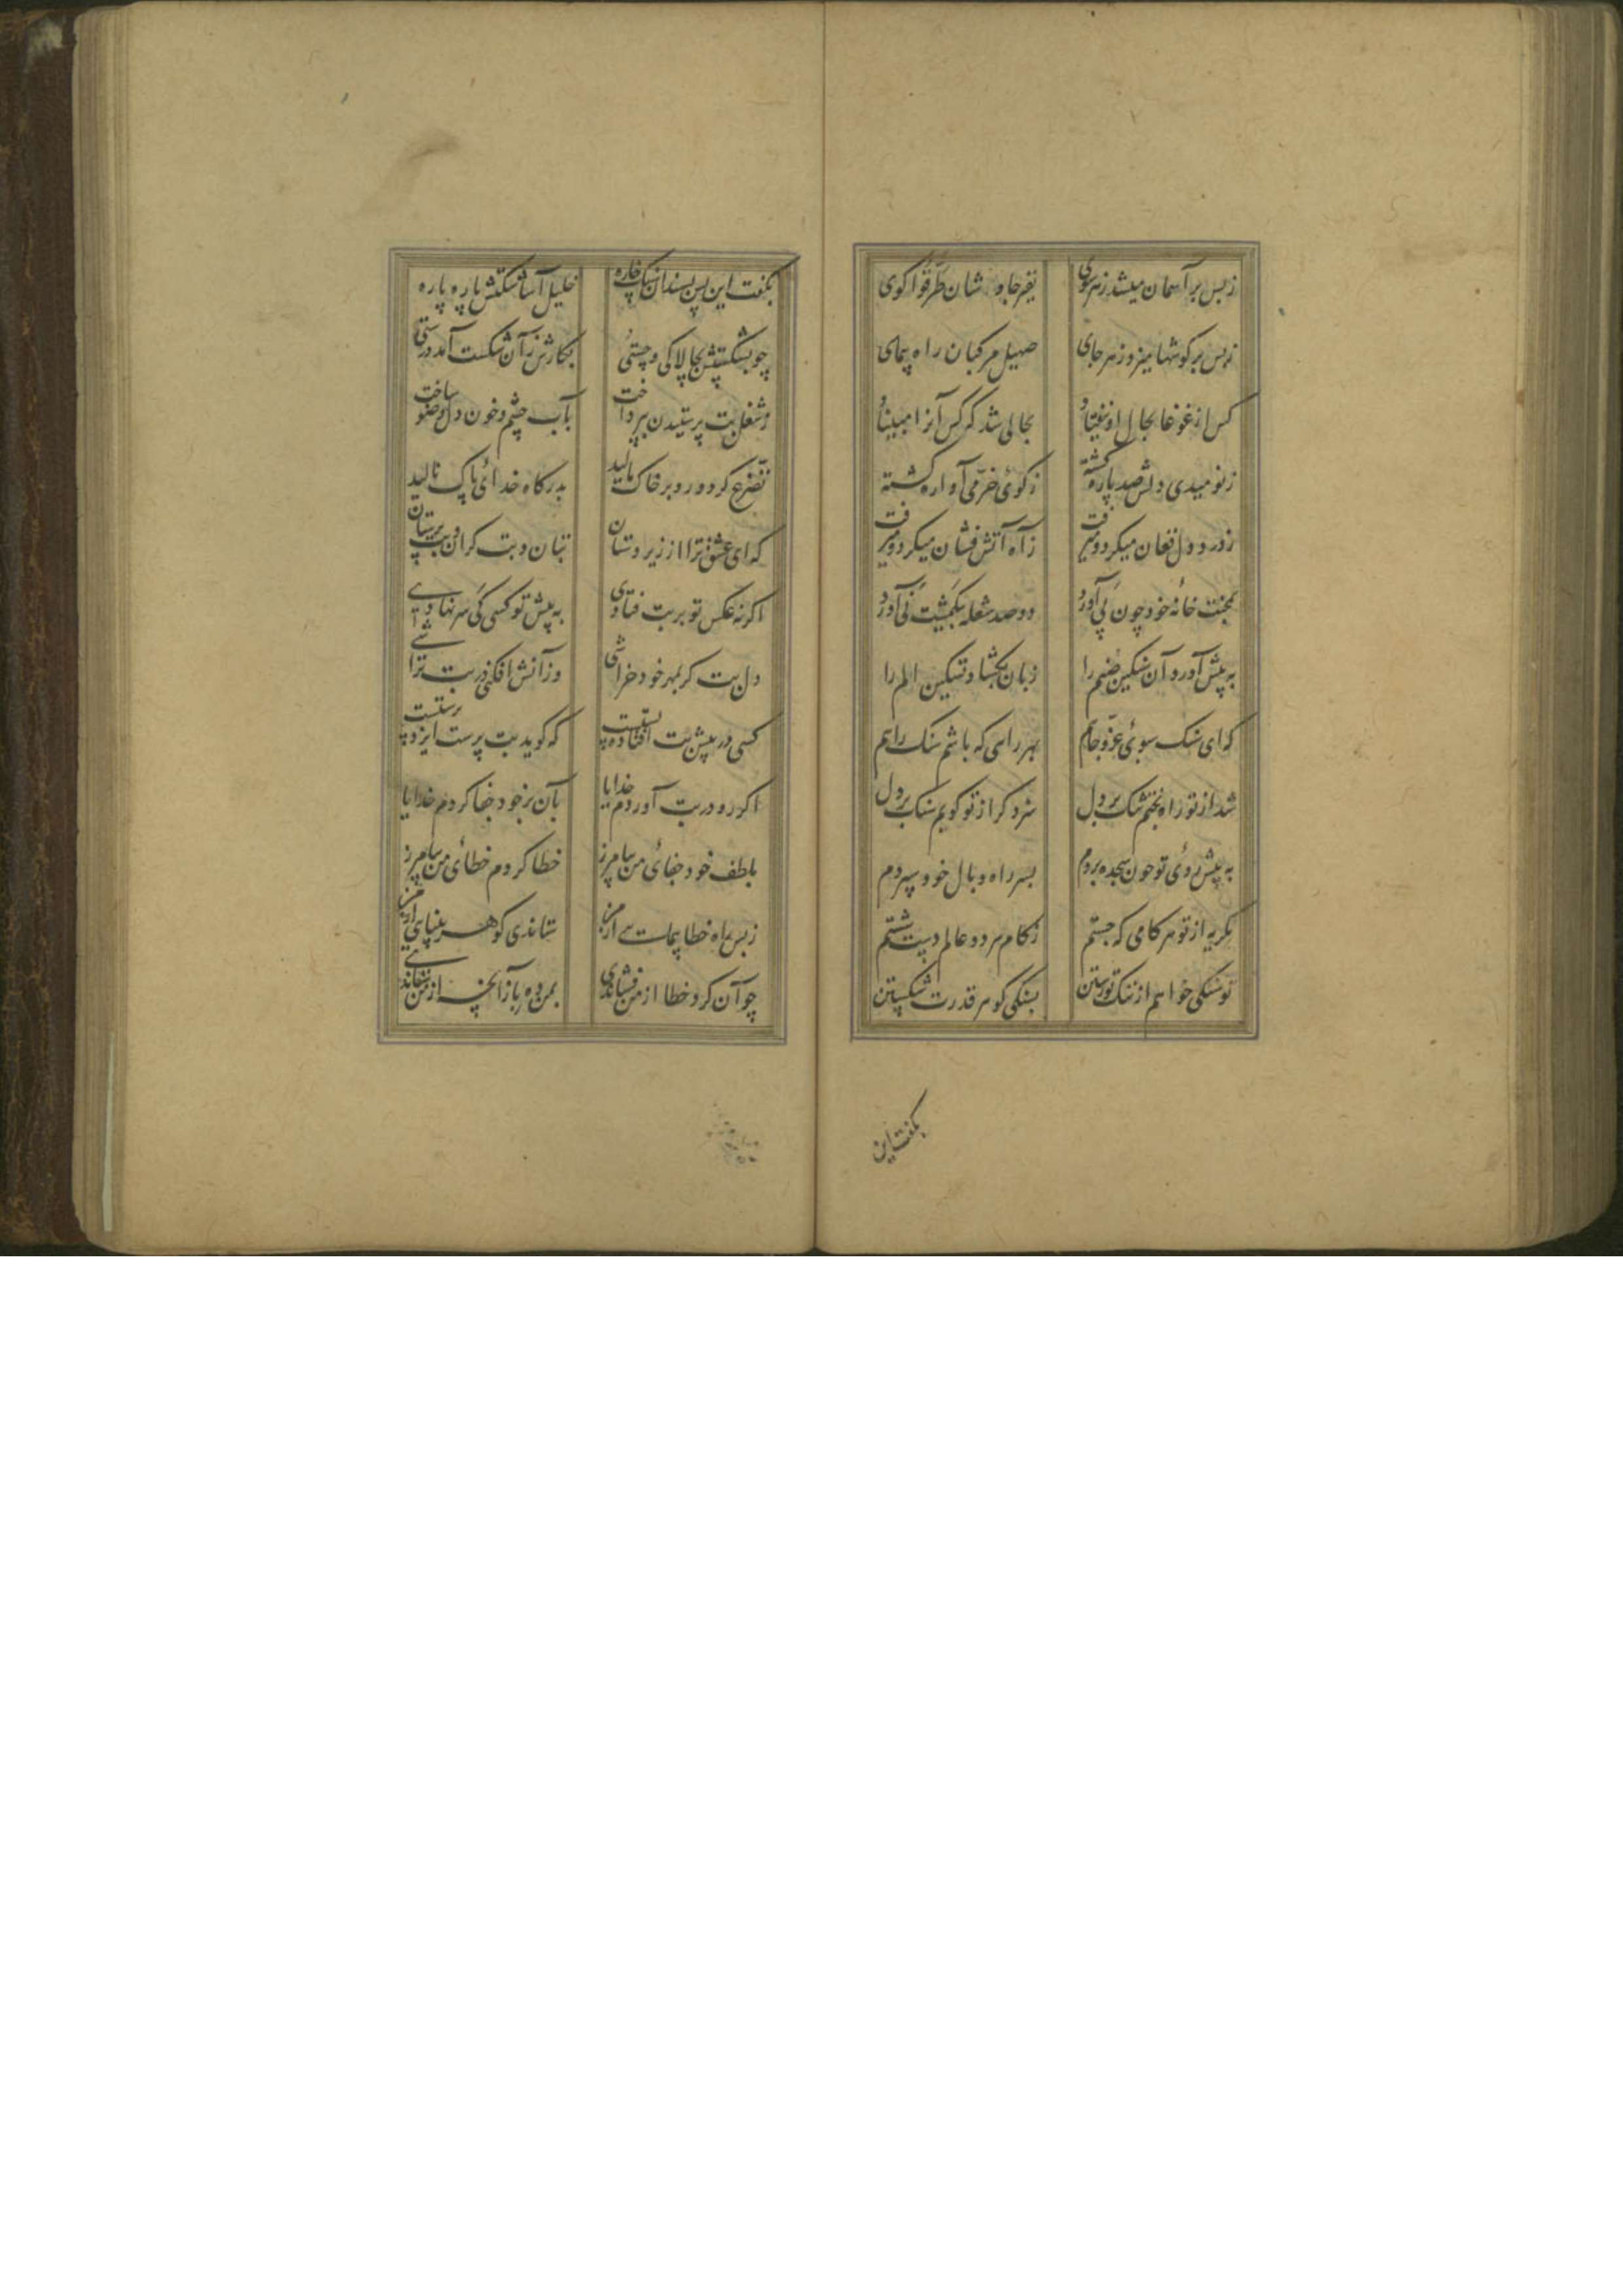 زبس بر آسمان میشد زهر سوی نفیر جاوشان طرقوا کوی
زبس بر کوشها میزد زهر جای صهیل مرکبان راه پیمای
کس از غوغا بحال او نیفتاد بحالی شد که کس آنرا مبیناد
زنومیدی دلش صد پاره کشته زکوی خرمی آواره کشته
زدرد دل فغان میکرد و میرفت زآه آتش فشان میکرد و میرفت
بمحنت خانه خود چون پی آورد دو صد شعله بیکمشت نی آورد
به پیش آورد آن سنکین صنم را زبان بکشاد تسکین الم را
که ای سنک سبوی عز و جاهم بهر راهی که باشم سنک راهم
شد از تو راه بختم تنک بر دل سزد کر از تو کوبم سنک بر دل
به پیش روی تو چون سجده بردم بسر راه وبال خود سپردم
بکریه از تو هر کامی که جستم زکام هر دو عالم دست شستم
تو سنکی خواهم از ننک تو رستن بسنکی کوهر قدرت شکستن
بکفت این
بکفت این پس بسندان سنک خاره خلیل آسا شکستش پاره پاره
چو بشکستش بچالاکی و چستی بکارش زآن شکست آمد درستی
زشغل بت پرستیدن بپرداخت بآب چشم و خون دل وضو ساخت
تضرع کرد و رو بر خاک مالید بدرکاه خدای پاک نالید
که ای عشق ترا از زیر دستان بتان و بت کران و بت پرستان
اکر نه عکس تو بر بت فتادی به پیش تو کسی کی سر نهادی
دل بت کر بمهر خود خراشی وزآنش افکنی در بت تراشی
کسی در پیش بت افتاده پستست که کوید بت پرست ایزد پرستست
اکر رو در بت آوردم خدایا بآن بر خود جفا کردم خدایا
بلطف خود جفای من بیامرز خطا کردم خطای من بیامرز
زبس راه خطا پیمائی از من ستاندی کوهر بینائی از من
چو آن کرد خطا از من فشاندی بمن ده باز آنچه از من ستاندی